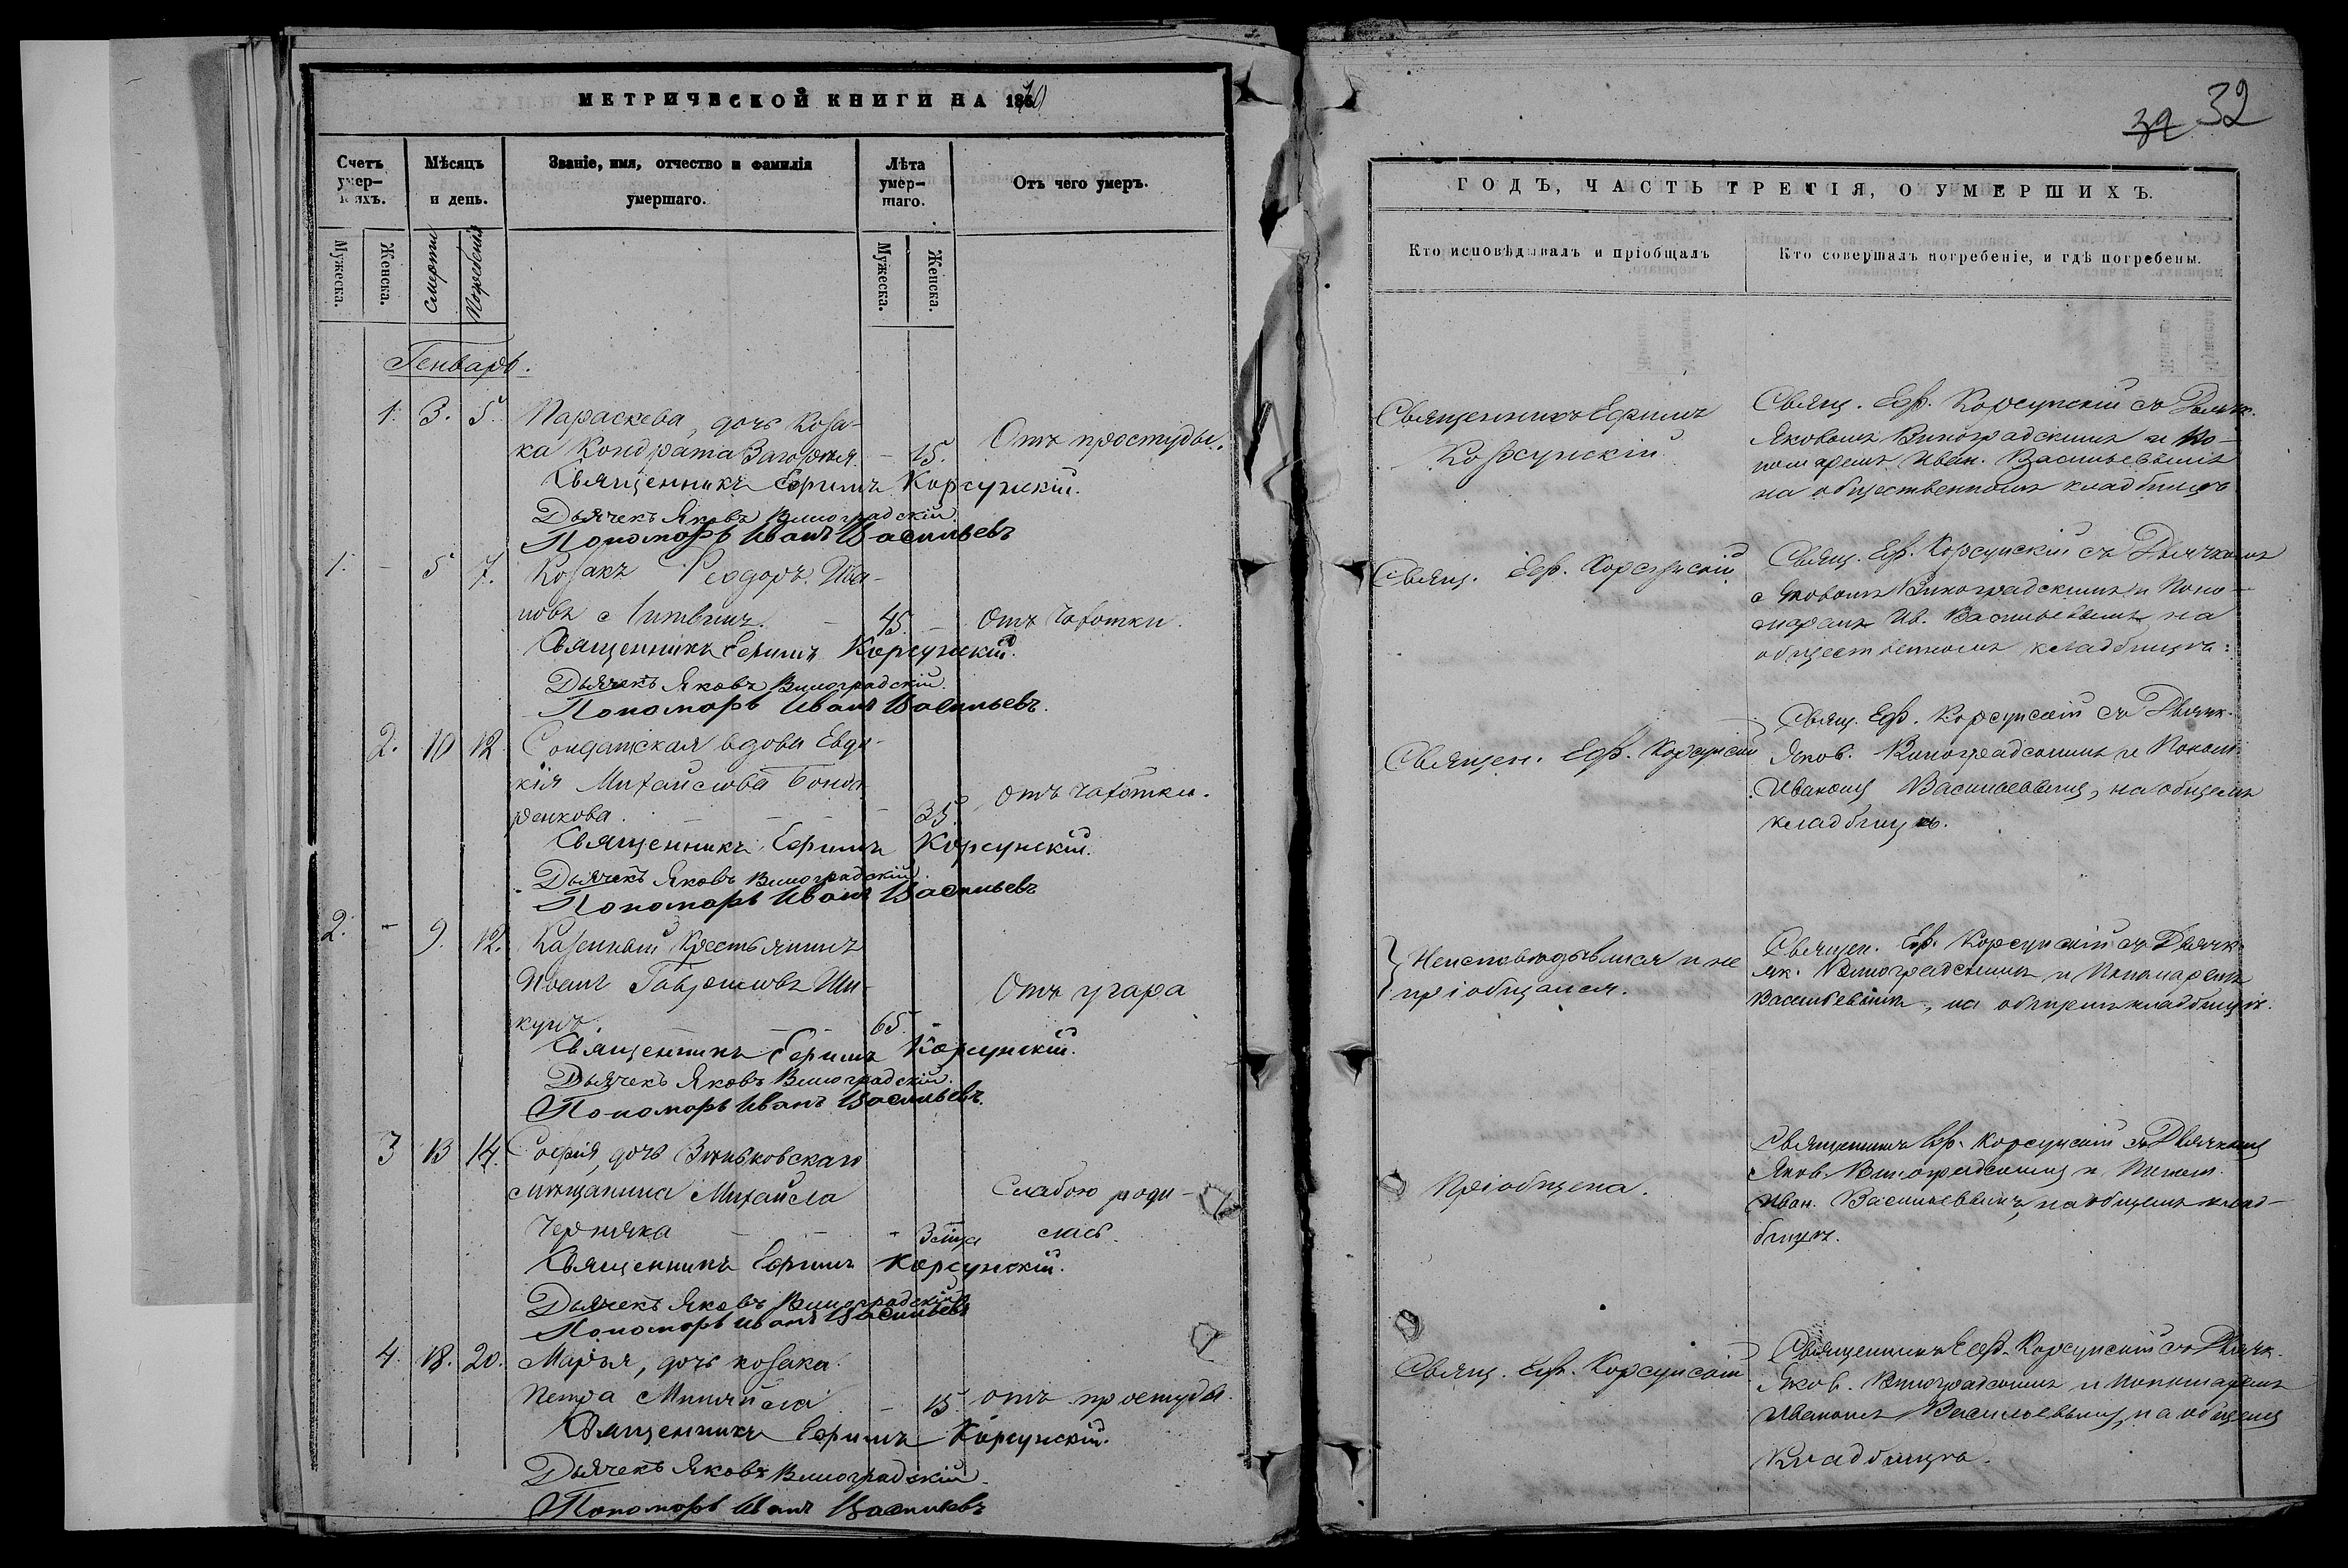 МЕТРИЧЕСКОЙ КНИГИ НА 1870
Счетъ умерших. Мѣсяцъ и день. Званіе, имя, отчество и фамилія умершаго. Лѣта умершаго. Отъ чего умеръ.
Мужеска. Женска. Смерти Погребенія Мужеска. Женска.
Генварь.
1. 3. 5. Параскева, дочь Коза-
ка Кондрата Загорния. – 15. Отъ простуды.
Священникъ Ефимъ Корсунскій.
Дьячекъ Яковъ Виноградскій.
Пономарь Иванъ Васильевъ
1. – 5 7. Козакъ Ѳеодоръ Ива-
новъ Литвинъ. – 45. – Отъ чахотки.
Священникъ Ефимъ Корсунскій.
Дьячекъ Яковъ Виноградскій.
Пономарь Иванъ Васильевъ.
2. 10 12. Солдатская вдова Евдо-
кія Михайлова Бонда-
ренкова. – 35. Отъ чахотки.
Священникъ Ефимъ Корсунскій.
Дьячекъ Яковъ Виноградскій.
Пономарь Иванъ Васильевъ
2. – 9. 12. Казенный Крестьянинъ
Иванъ Гавриловъ Ши-
кунъ. 65. Отъ угара
Священникъ Ефимъ Корсунскій.
Дьячекъ Яковъ Виноградскій.
Пономарь Иванъ Васильевъ.
3 13 14. Софія, дочь Зиньковскаго
мѣщанина Михайла Слабою роди-
Черняка лась.
Священникъ Ефимъ Корсунскій.
Дьячекъ Яковъ Виноградскій
Пономарь Иванъ Васильевъ
4. 18. 20. Марья, дочь козака
Петра – 15. отъ простуды.
Священникъ Ефимъ Корсунскій.
Дьячекъ Яковъ Виноградскій.
Пономарь Иванъ Васильевъ
32 32
ГОДЪ, ЧАСТЬ ТРЕТІЯ, О УМЕРШИХЪ.
Кто исповѣдывалъ и пріобщалъ Кто совершалъ погребеніе, и гдѣ погребены.
Священникъ Ефимъ
Корсунскій
Свящ. Еф. Корсунскій съ Дьячк.
Яковомъ Виноградскимъ и По-
номаремъ Иван. Васильевымъ
на общественномъ кладбищѣ
Свящ. Еф. Корсунскій
Свящ. Еф. Корсунскій съ Дьячкомъ
Яковомъ Виноградскимъ и Поно-
маремъ Ив. Васильевымъ на
общественномъ кладбищѣ.
Священ. Еф. Корсунскій
Свящ. Еф. Корсунскій съ Дьячк.
Яков. Виноградскимъ и Поном.
Иваномъ Васильевымъ, на общемъ
кладбищѣ.
Неисповѣдывался и не
пріобщался.
Священ. Еф. Корсунскій съ Дьячк.
Як. Виноградскимъ и Пономаремъ
Васильевымъ, на общемъ кладбищѣ.
Пріобщена.
Священникъ Еф. Корсунскій съ Дьячкомъ
Яков. Виноградскимъ и Поном.
Иван. Васильевымъ, на общемъ клад-
бищѣ.
Свящ. Еф. Корсунскій
Священникъ Еф. Корсунскій съ Дьячк.
Яков. Виноградскимъ и Пономаремъ
Иваномъ Васильевымъ, на общемъ
Кладбищѣ.